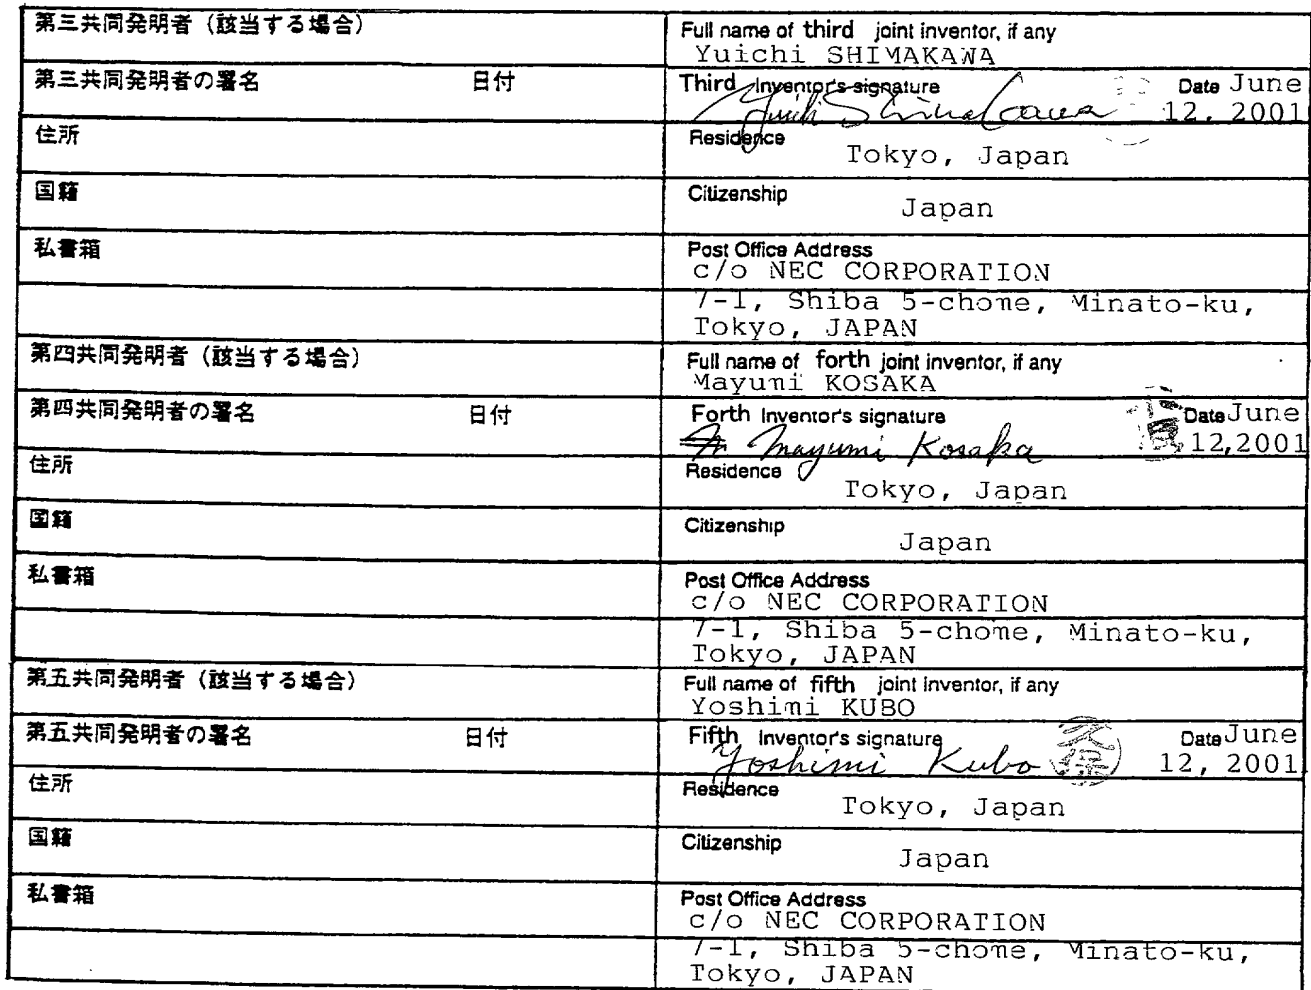 第三共同発明者（該当する場合）
Full name of third joint inventor, if any
Yuichi SHIMAKAWA
第三共同発明者の署名 日付
Third Inventor's signature Date June
Yuichi Shimakawa 12. 2001
住所
Residence
Tokyo, Japan
国籍
Citizenship
Japan
私書箱
Post Office Address
c/o NEC CORPORATION
7-1, Shiba 5-chome, Minato-ku,
Tokyo, JAPAN
第四共同発明者（該当する場合）
Full name of forth joint inventor, if any
Mayumi KOSAKA
第四共同発明者の署名 日付
Forth Inventor's signature Date June
Mayumi Kosaka 12,2001
住所
Residence
Tokyo, Japan
国籍
Citizenship
Japan
私書箱
Post Office Address
c/o NEC CORPORATION
7-1, Shiba 5-chome, Minato-ku,
Tokyo, JAPAN
第五共同発明者（該当する場合）
Full name of fifth joint inventor, if any
Yoshimi KUBO
第五共同発明者の署名 日付
Fifth Inventor's signature Date June
Yoshimi Kubo 久保 12, 2001
住所
Residence
Tokyo, Japan
国籍
Citizenship
Japan
私書箱
Post Office Address
c/o NEC CORPORATION
7-1, Shiba 5-chome, Minato-ku,
Tokyo, JAPAN